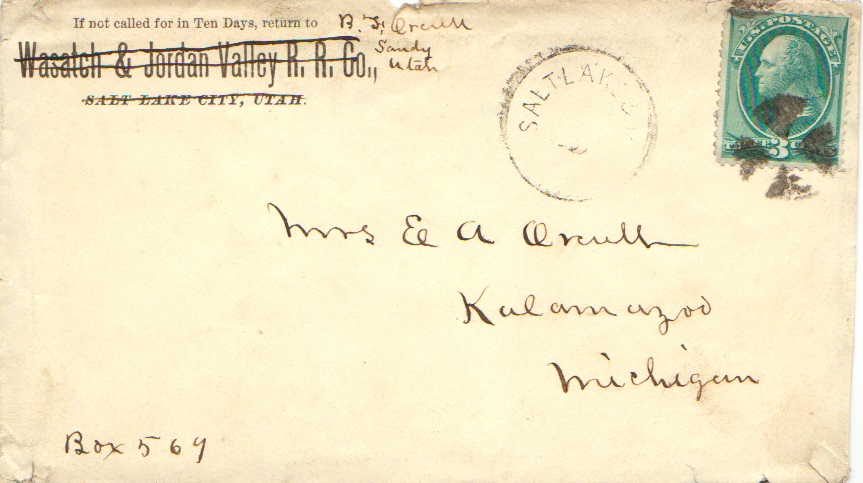 If not called for in Ten Days, return to B. F. Orcutt
Sandy
Utah
Wasatch & Jordan Valley R. R. Co.,
SALT LAKE CITY, UTAH.
SALT LAKE C
U.S. POSTAGE
3
Mrs E A Orcutt
Kalamazoo
Michigan
Box 569